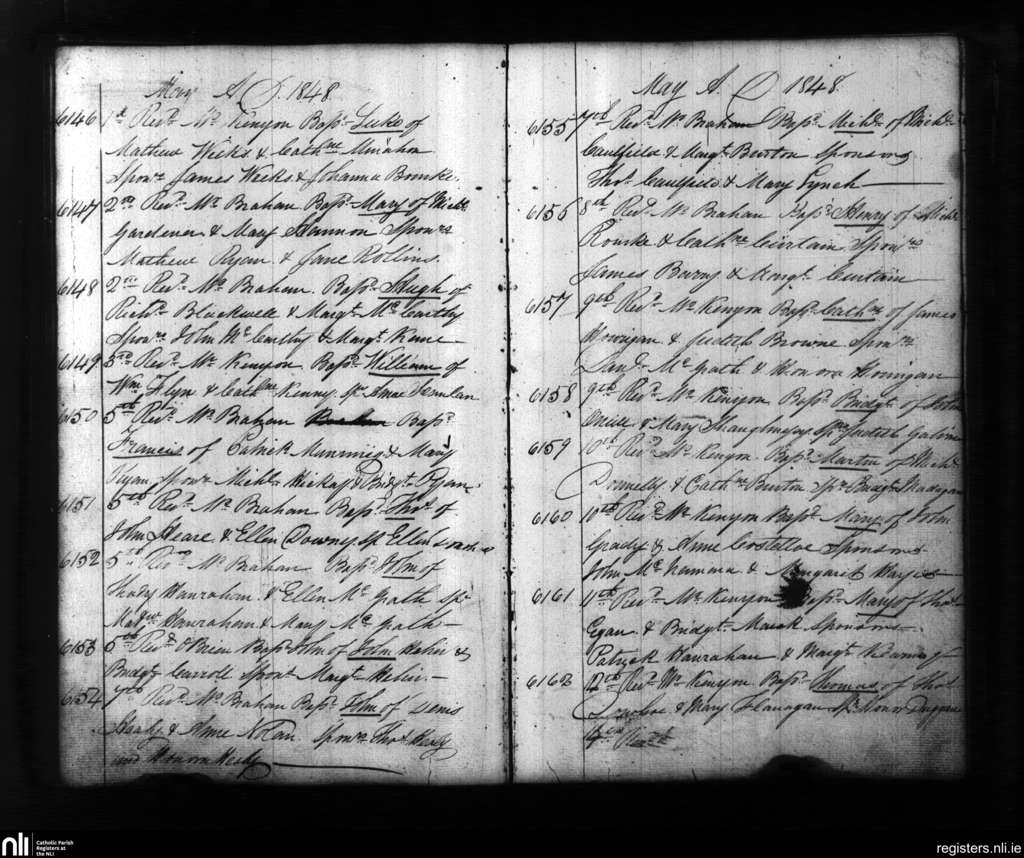 May A. D. 1848.
6146 1st Revd. Mr. Kenyon Bapd. Luke of
Mathew Weeks & Cathne
Sponrs James Weeks & Johanna Bourke.
6147 2nd Revd. Mr. Brahan Bapd. Mary of Michl.
Gardener & Mary Hannon Sponrs
Mathew Ryan & Jane Rollins.
6148 2nd Revd. Mr. Brahan. Bapd. Hugh of
Richd. Blackwell & Margt. McCarthy
Sponrs John McCarthy & Margt. Kane
6149 Revd. Mr. Kenyon Bapd. William of
Wm. Flyn & Cathne Kenny. Sps. Scanlan
6150 5th Revd. Mr. Brahan Bapd.
Francis of Patrick & Mary
Ryan Sponrs Michl. Hickey & Bridgt. Ryan.
6151 5th Revd. Mr. Brahan Bapd. Thos. of
John Heare & Ellen Downey Sp. Ellen
6152 5th Revd. Mr. Brahan Bapd. John of
Thady Hanrahan & Ellen McGrath Sps.
Hanrahan & Mary McGrath
6153 5th Revd. O'Brien Bapd. John of John Keher &
Bridgt. Carroll Sponr. Margt. Keher.
6154 7th Revd. Mr. Brahan Bapd. John of Denis
Healy & Anne Nolan Sponrs Thos. Healy
and Honora Healy
May A. D. 1848.
6155 7th Revd. Mr. Brahan Bapd. Michl. of Michl.
Caulfield & Margt. Burton Sponsors
Thos. Caulfield & Mary Lynch
6156 8th Revd. Mr. Brahan Bapd. Henry of Michl.
Rourke & Cathne Curtain Sponrs
James Burns & Margt. Curtain
6157 9th Revd. Mr. Kenyon Bapd. Cathne of James
Horrigan & Judith Browne Sponrs
McGrath & Honora Horrigan
6158 9th Revd. Mr. Kenyon Bapd. Bridgt. of John
& Mary Shaughnessy Sps. Judith
6159 10th Revd. Mr. Kenyon. Bapd. Martin of Michl.
Donnelly & Cathne Burton Spr. Bridgt. Madigan
6160 10th Revd. Mr. Kenyon Bapd. Mary of John
Grady & Anne Costelloe Sponsors
John McNamara & Margaret Hayes
6161 11th Revd. Mr. Kenyon Bapd. Mary of Thos.
Egan & Bridgt. Sponsors
Patrick Hanrahan & Margt.
6162 12th Revd. Mr. Kenyon Bapd. Thomas of Thos.
& Mary Flanagan Sps. Honor
nli
Catholic Parish
Registers at
the NLI
registers.nli.ie